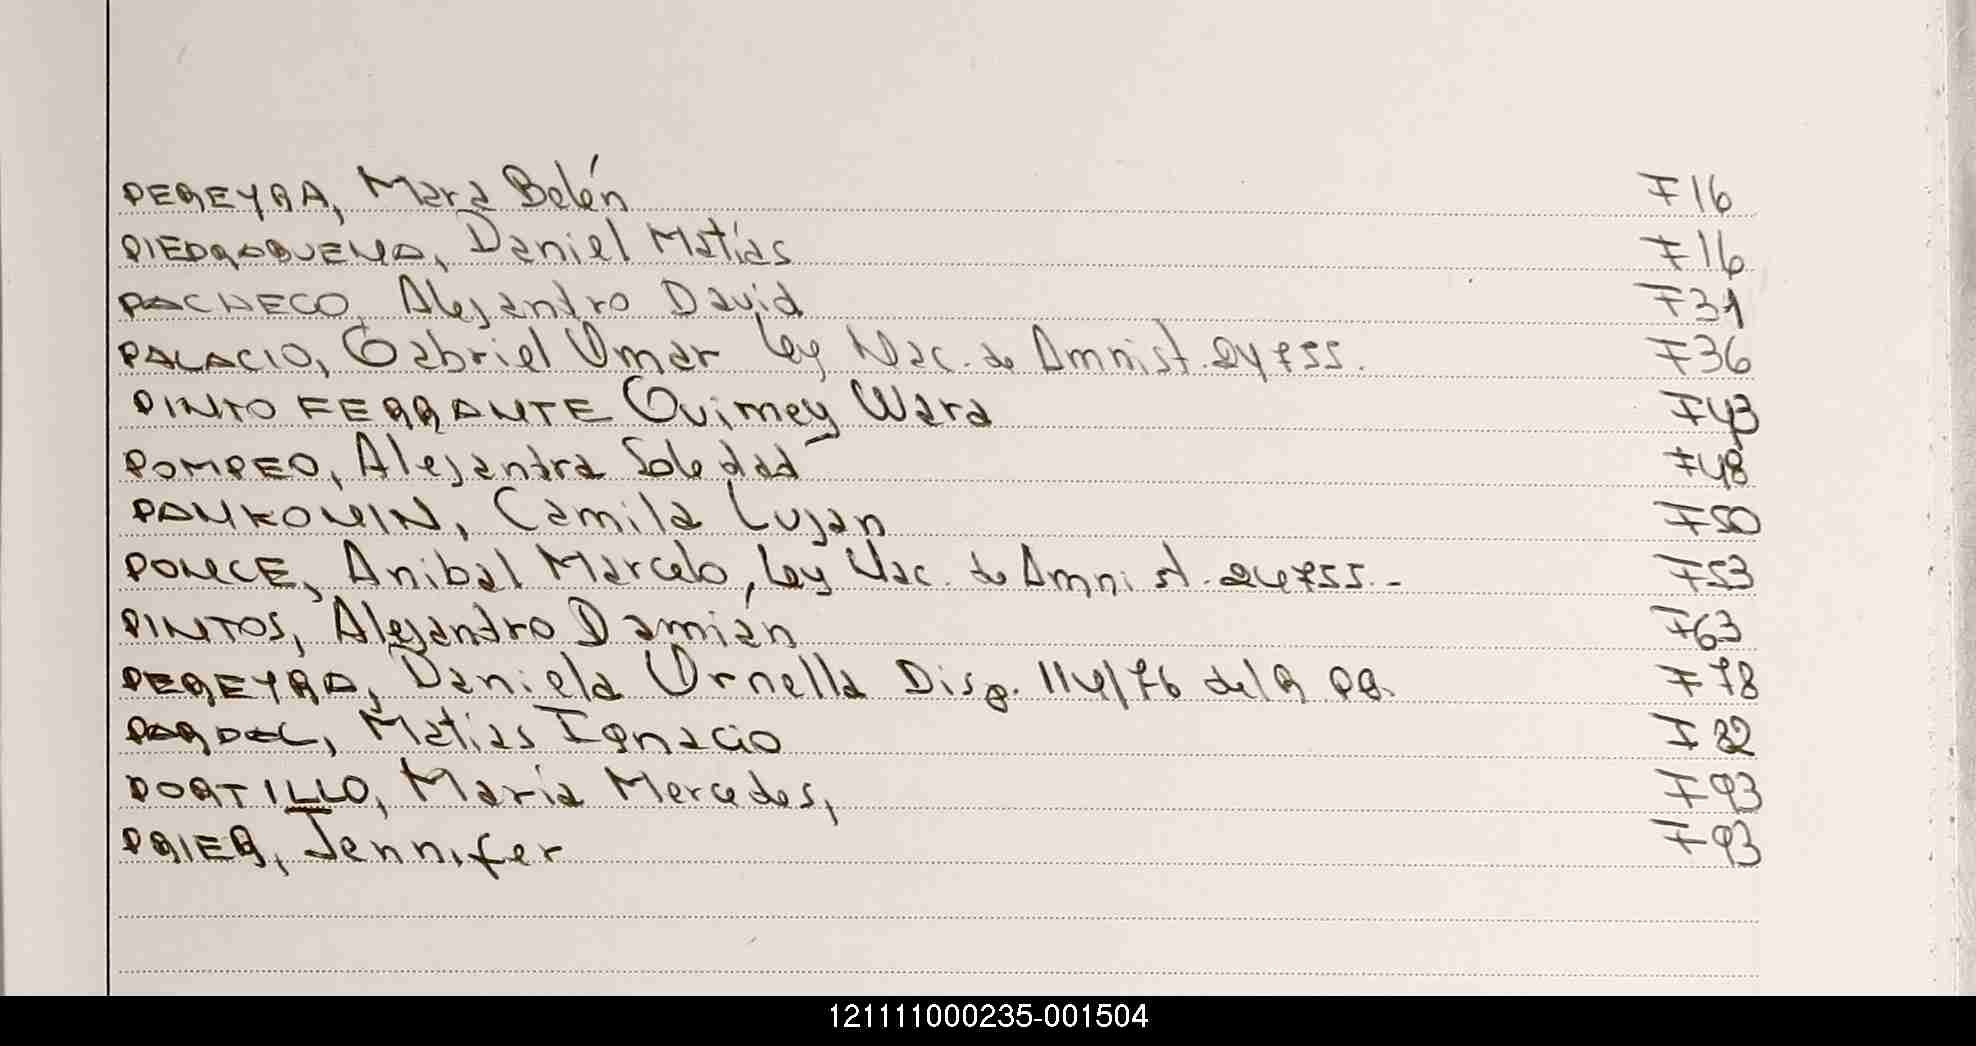 PEREYRA, Mara Belén F16
PIEDRABUENA, Daniel Matías F16
PACHECO, Alejandro David F31
PALACIO, Gabriel Omar Ley Nac. de Amnist. 24755. F36
PINTO FERRANTE Quimey Wara F43
POMPEO, Alejandra Soledad F48
PANKONIN, Camila Lujan F50
PONCE, Anibal Marcelo, Ley Nac. de Amnist. 24755.- F53
PINTOS, Alejandro Damián F63
PEREYRA, Daniela Ornella Disp. 114/76 del R PB. F78
Matias Ignacio F82
PORTILLO, María Mercedes, F93
PRIER, Jennifer F93
121111000235-001504